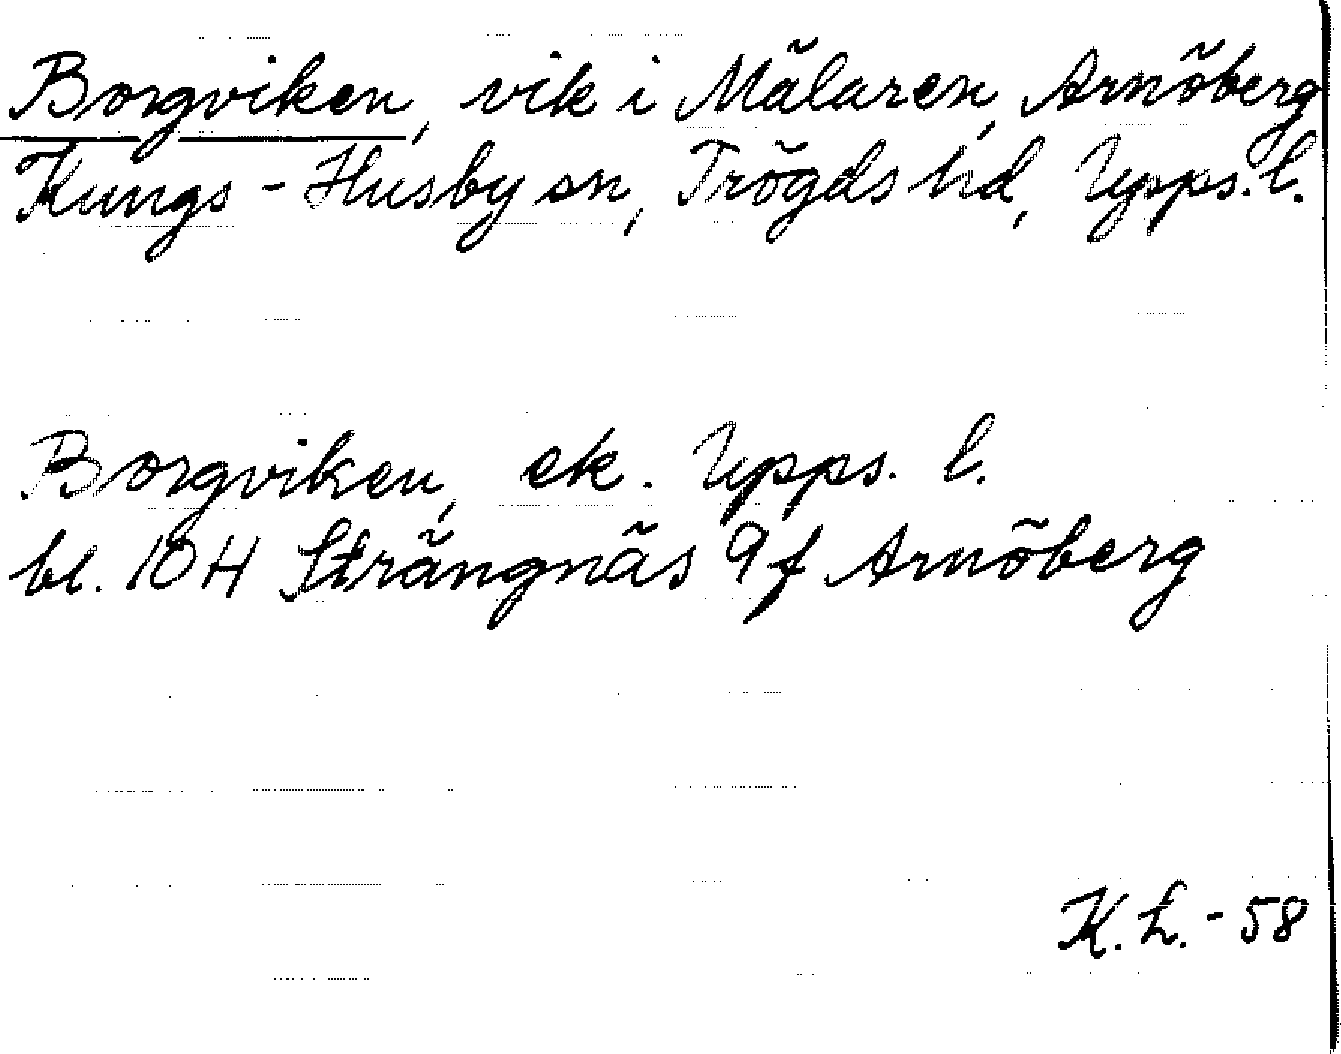 Borgviken, vik i Mälaren, Arnöberg
Kungs-Husby sn, Trögds hd, Upps. l.
Borgviken, ek. Upps. l.
bl. 10 H Strängnäs 9 f Arnöberg
K. L. - 58